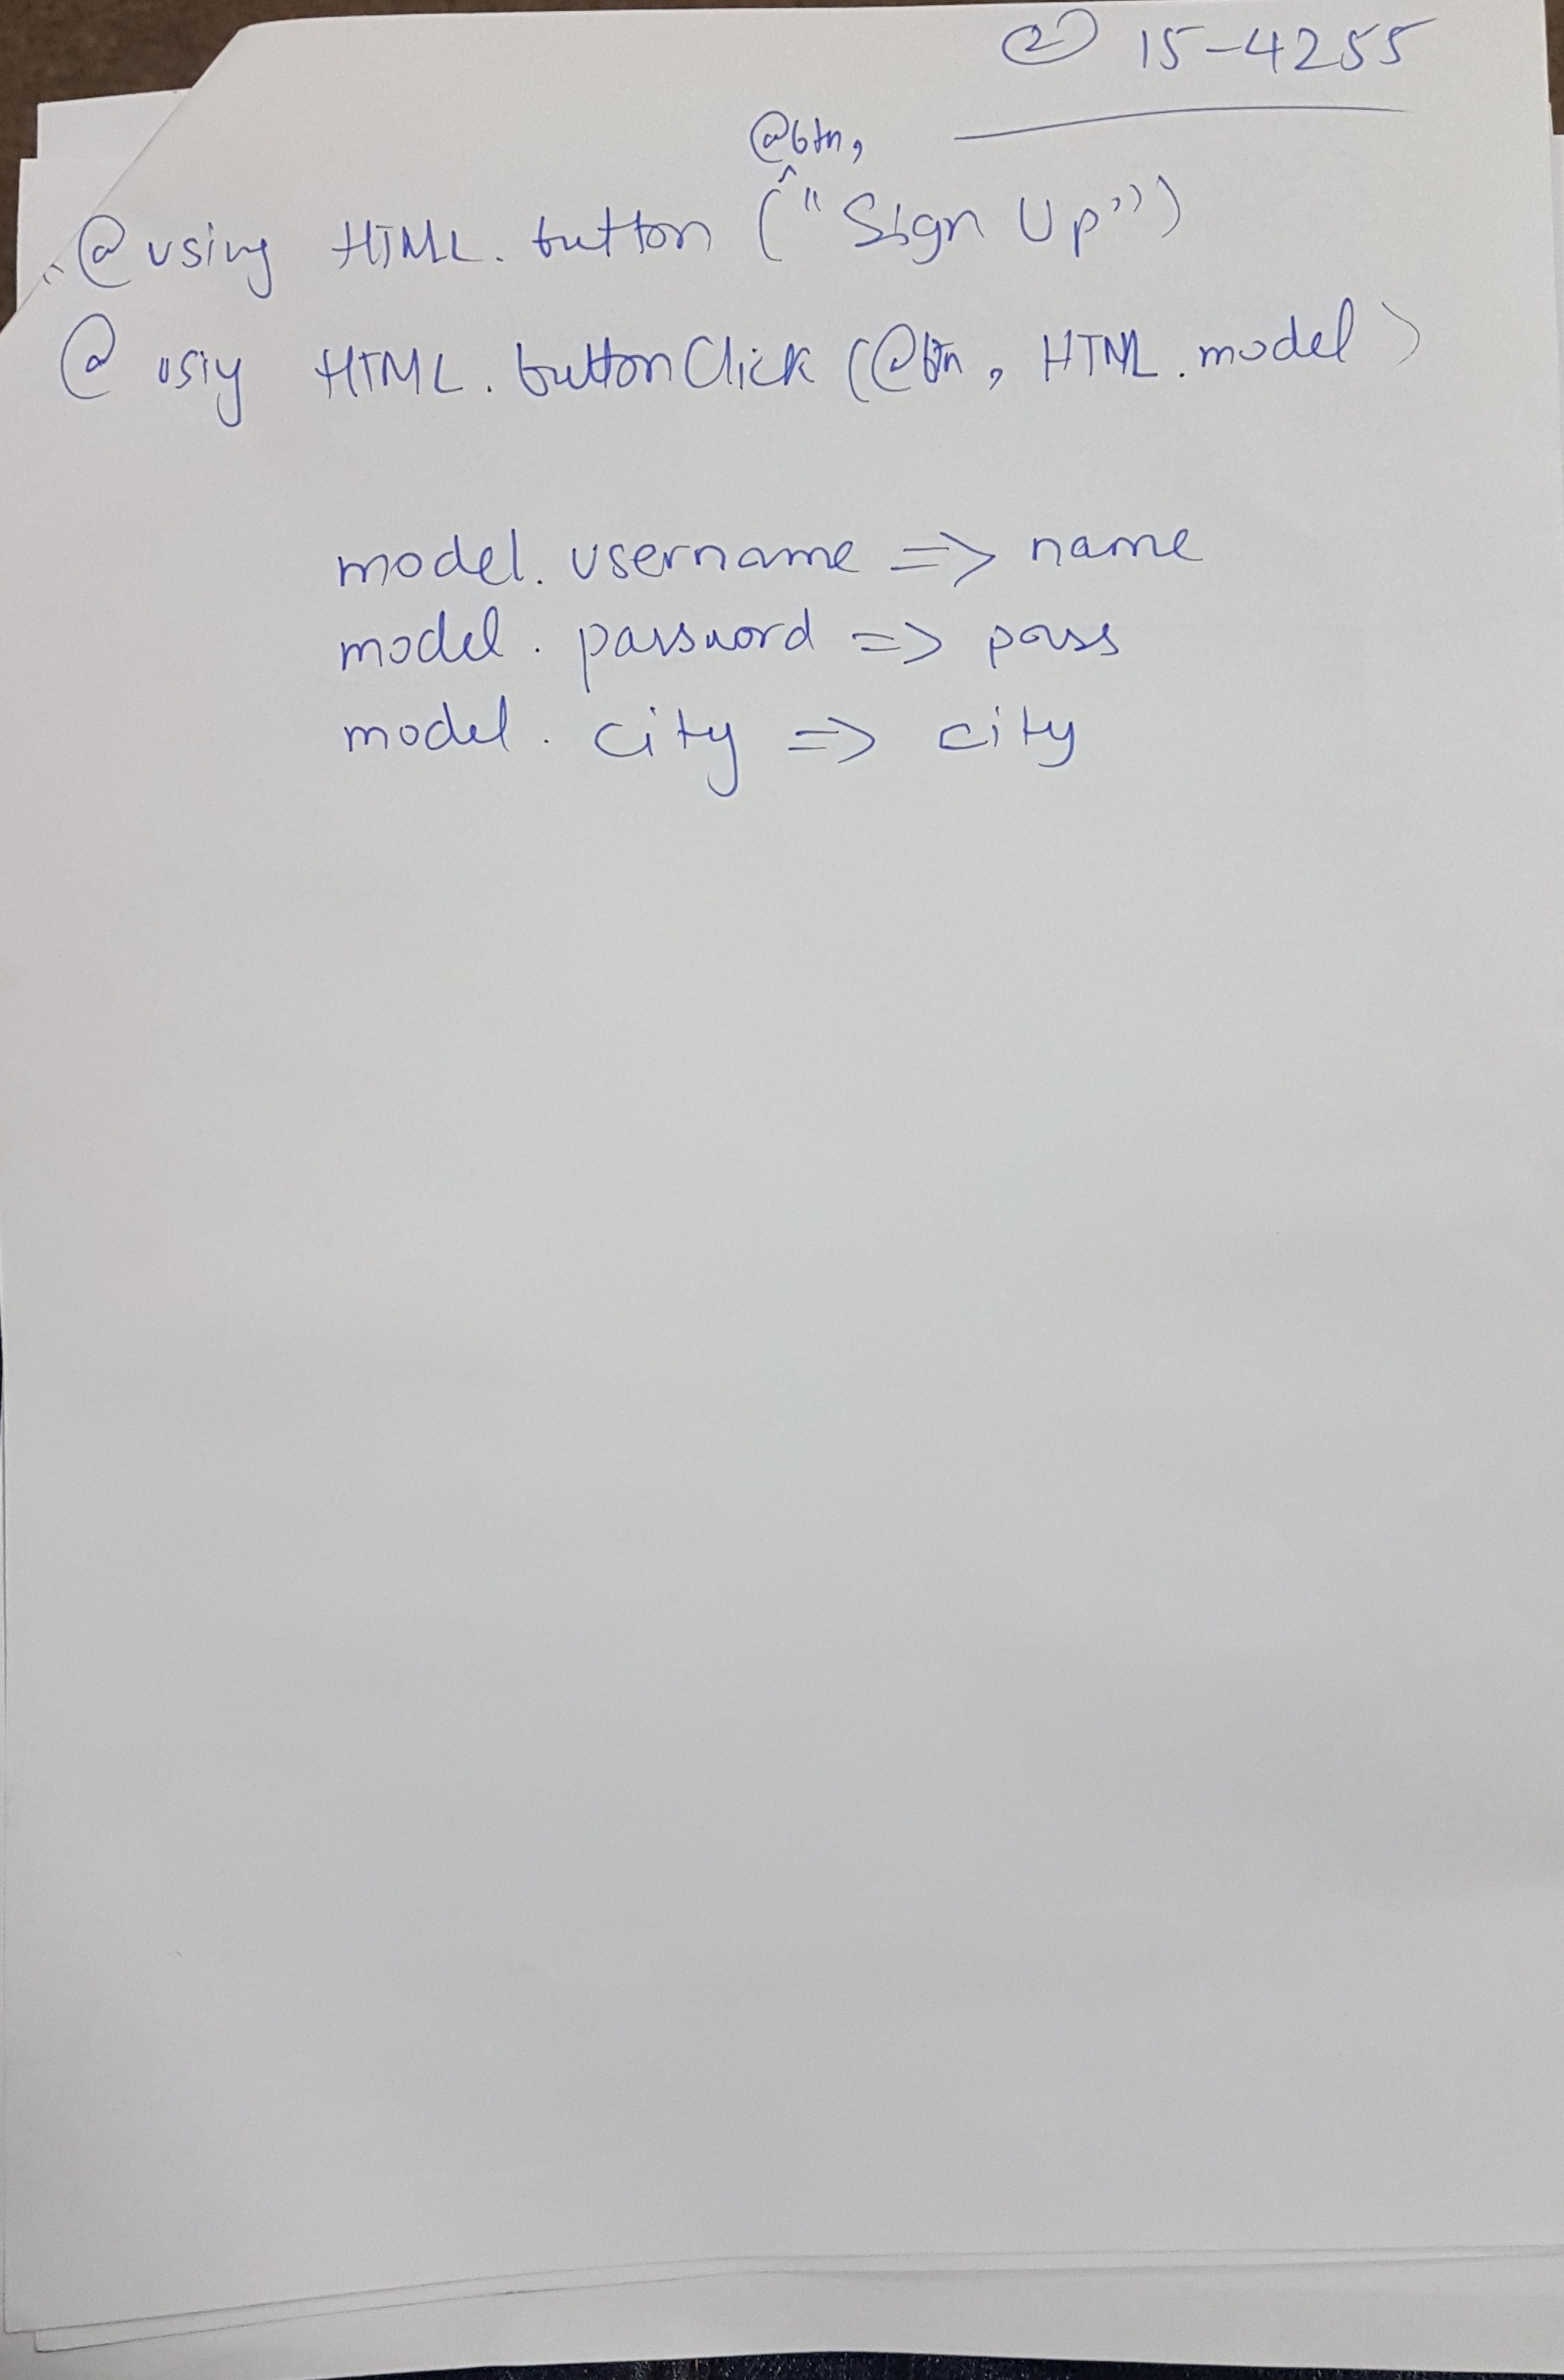 ② 15-4255
@btn,
@using HTML.button ("Sign Up")
@usiy HTML.buttonClick (@btn, HTML.model)
model.username => name
model.password => pass
model.city => city